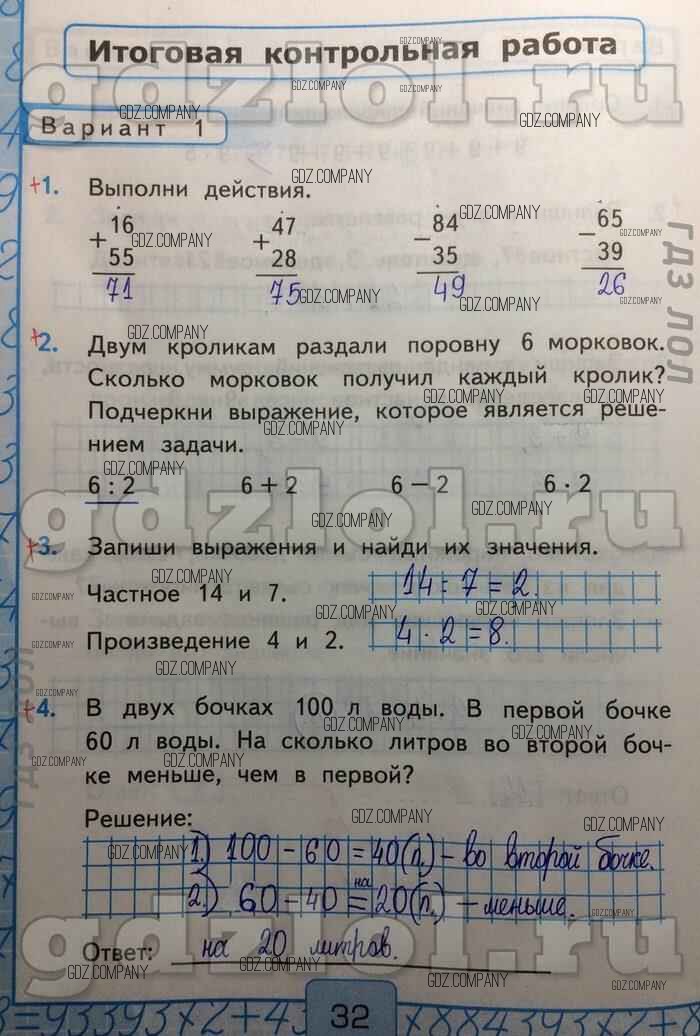 Итоговая контрольная работа
Вариант 1
+1. Выполни действия.
+ 16 + 47 − 84 − 65
55 28 35 39
71 75 49 26
+2. Двум кроликам раздали поровну 6 морковок.
Сколько морковок получил каждый кролик?
Подчеркни выражение, которое является реше-
нием задачи.
6 : 2 6 + 2 6 − 2 6 · 2
+3. Запиши выражения и найди их значения.
Частное 14 и 7. 14 : 7 = 2.
Произведение 4 и 2. 4 · 2 = 8.
+4. В двух бочках 100 л воды. В первой бочке
60 л воды. На сколько литров во второй боч-
ке меньше, чем в первой?
Решение:
1.) 100 − 60 = 40 (л.) − во второй бочке.
2.) 60 − 40 = на 20 (л.) − меньше.
Ответ: на 20 литров.
32
gdzlol.ru
gdzlol.ru
gdzlol.ru
ГДЗ ЛОЛ
ГДЗ ЛОЛ
GDZ.COMPANY